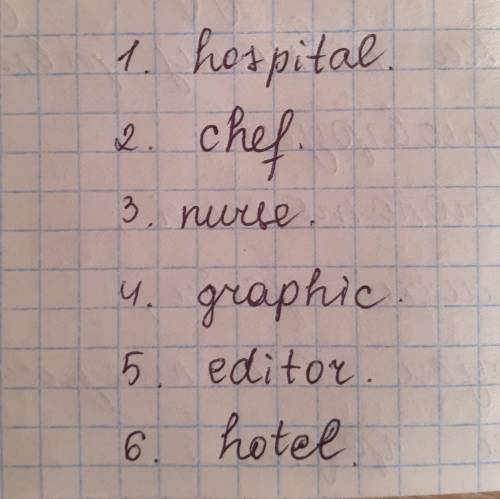 1. hospital.
2. chef.
3. nurse.
4. graphic.
5. editor.
6. hotel.